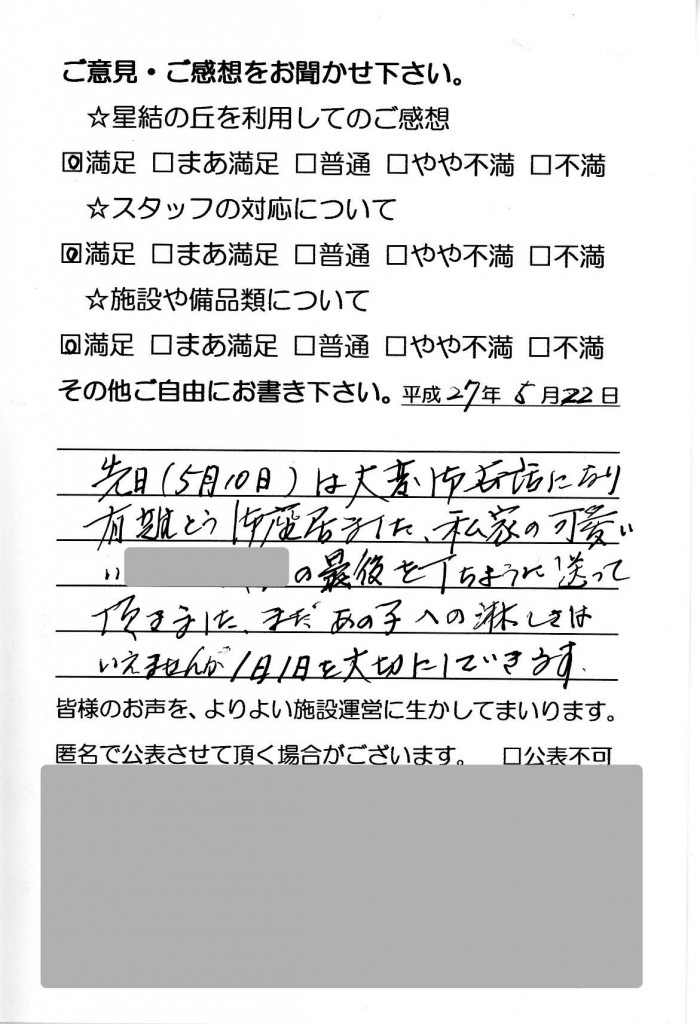 ご意見・ご感想をお聞かせ下さい。
☆星結の丘を利用してのご感想
☑満足 □まあ満足 □普通 □やや不満 □不満
☆スタッフの対応について
☑満足 □まあ満足 □普通 □やや不満 □不満
☆施設や備品類について
☑満足 □まあ満足 □普通 □やや不満 □不満
その他ご自由にお書き下さい。平成27年5月22日
先日(5月10日)は大変御世話になり
有難とう御座居ました、私家の可愛い
い の最後を丁ちょうに送って
頂きました、まだあの子への淋しさは
いえませんが1日1日を大切にしていきます.
皆様のお声を、よりよい施設運営に生かしてまいります。
匿名で公表させて頂く場合がございます。 □公表不可